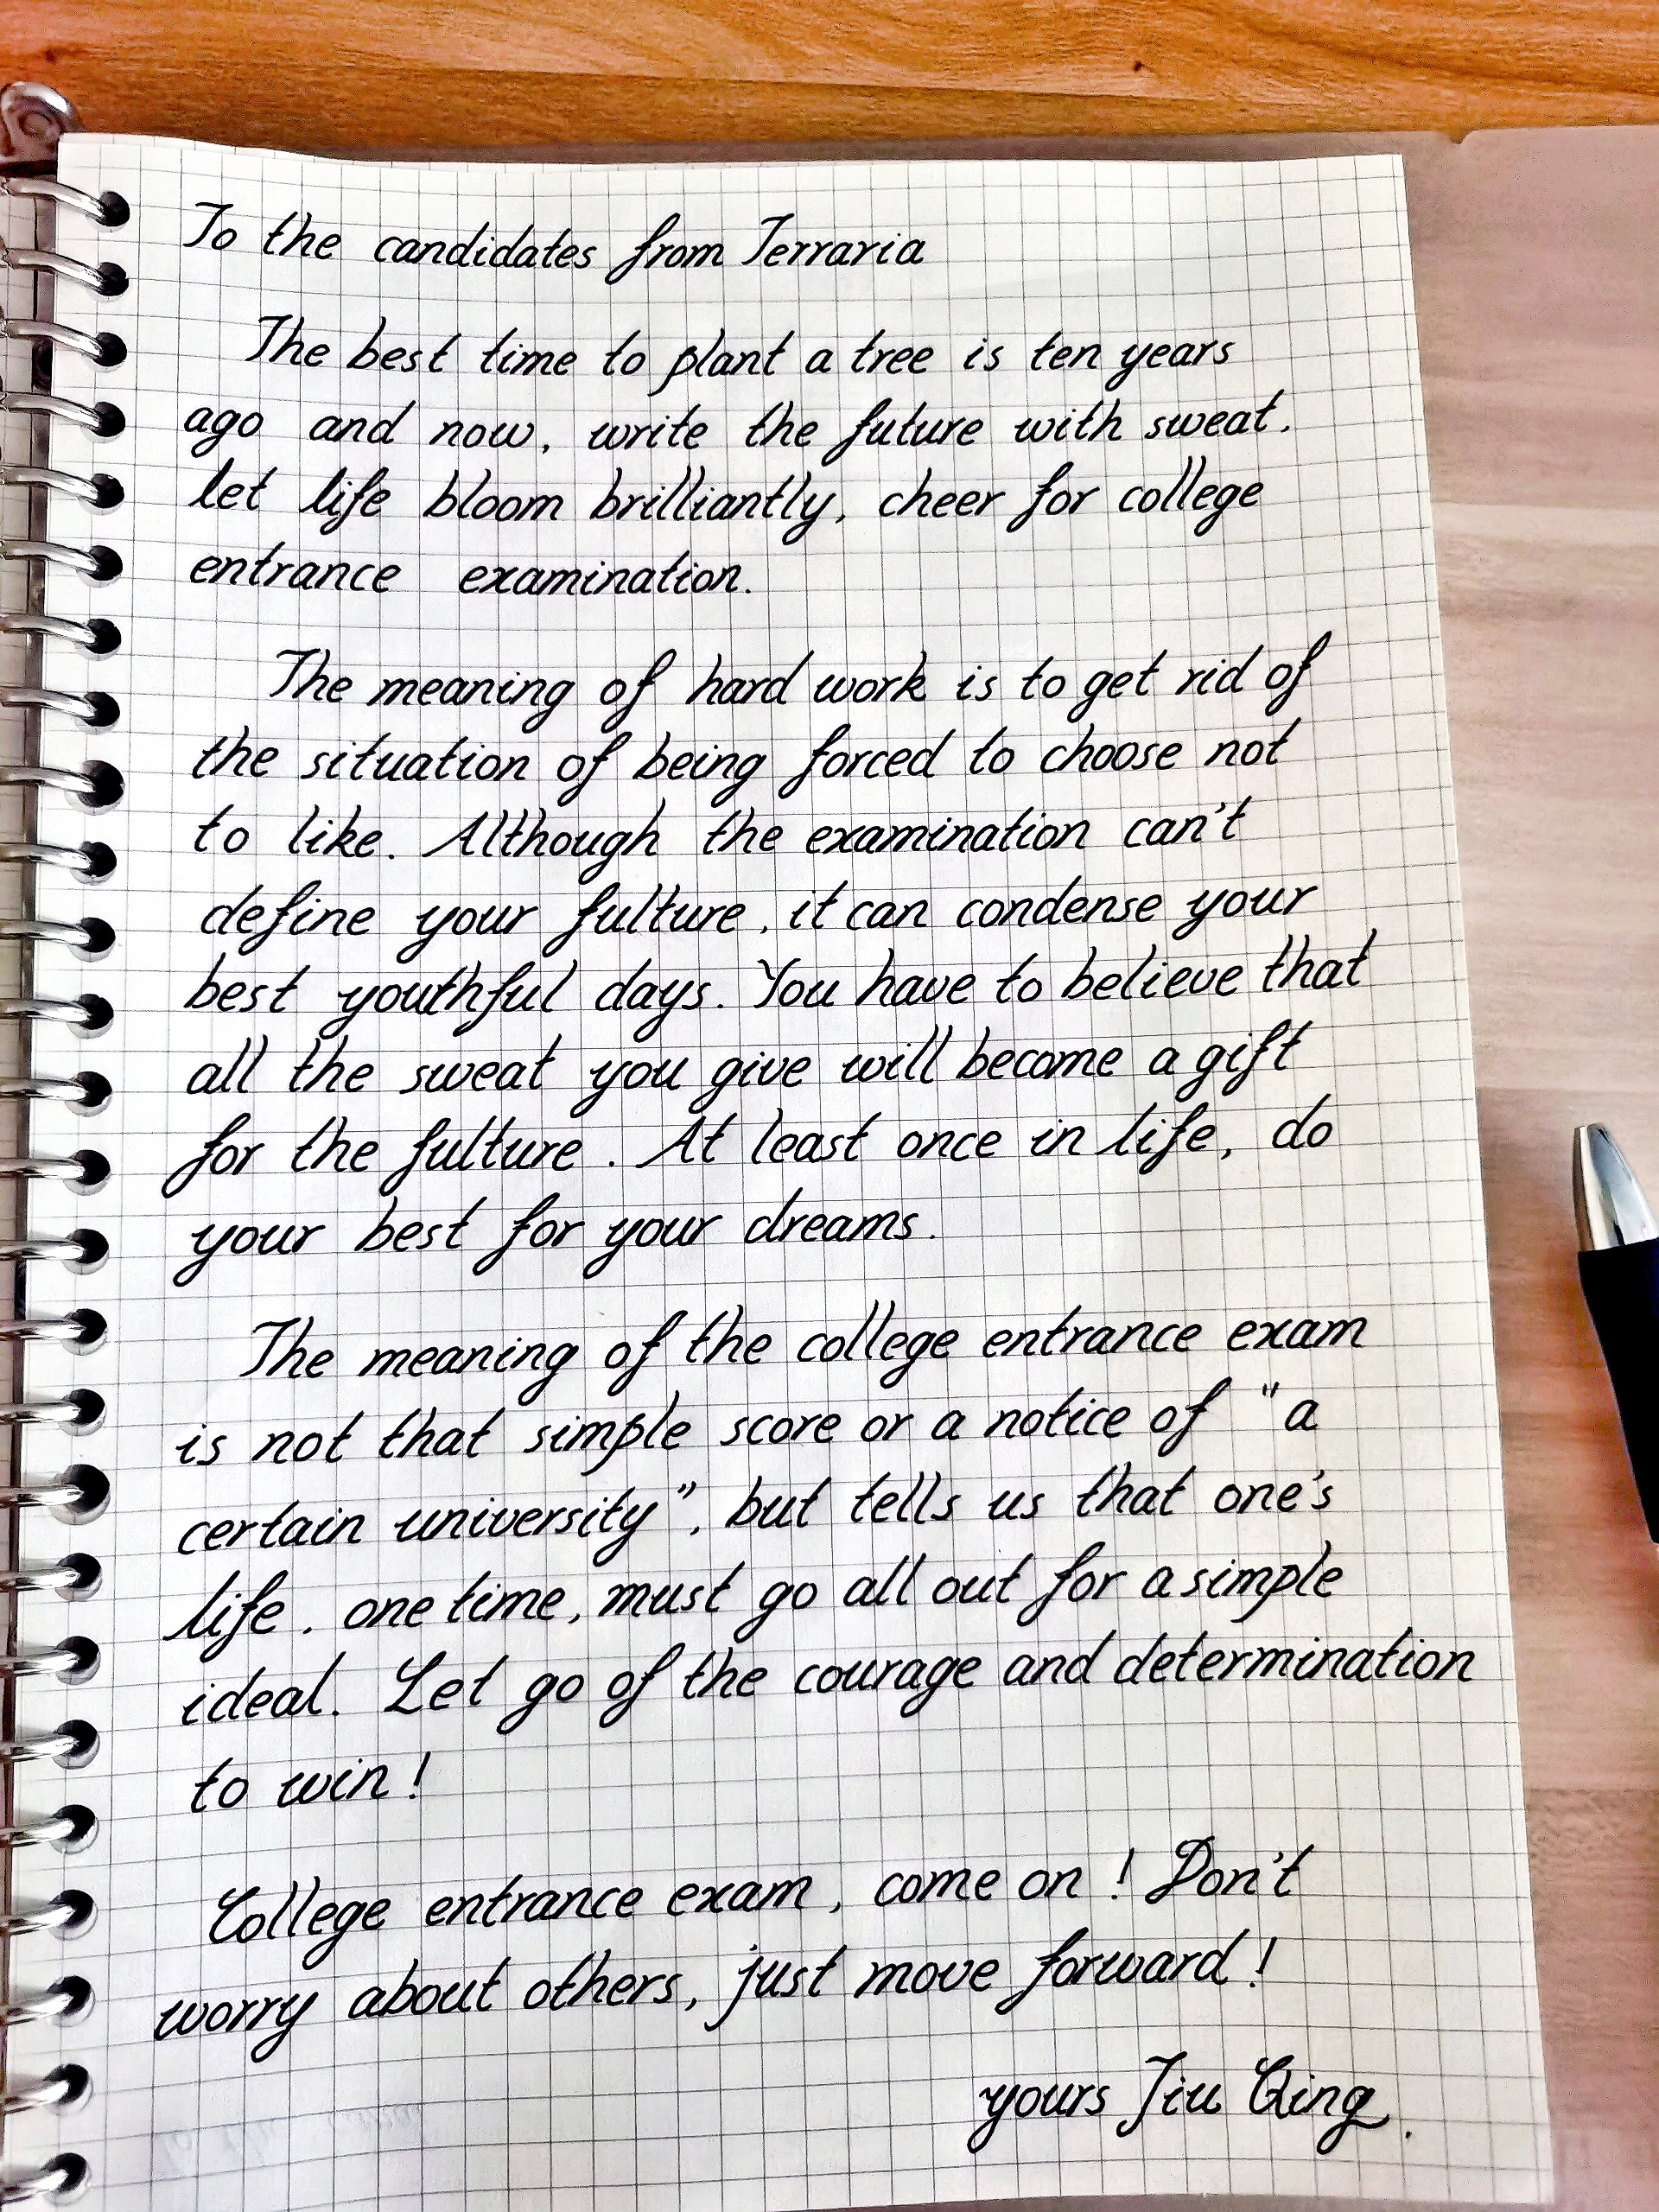 To the candidates from Terraria
The best time to plant a tree is ten years
ago and now, write the future with sweat.
let life bloom brilliantly, cheer for college
entrance examination.
The meaning of hard work is to get rid of
the situation of being forced to choose not
to like. Although the examination can't
define your fulture, it can condense your
best youthful days. You have to believe that
all the sweat you give will become a gift
for the fulture. At least once in life, do
your best for your dreams.
The meaning of the college entrance exam
is not that simple score or a notice of "a
certain university", but tells us that one's
life. one time, must go all out for a simple
ideal. Let go of the courage and determination
to win!
College entrance exam, come on! Don't
worry about others, just move forward!
yours Jiu Qing.